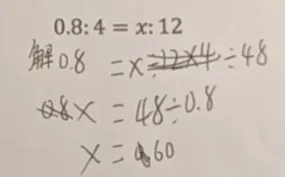 0.8:4=x:12
解 0.8 =x ÷48
x =48÷0.8
x =60